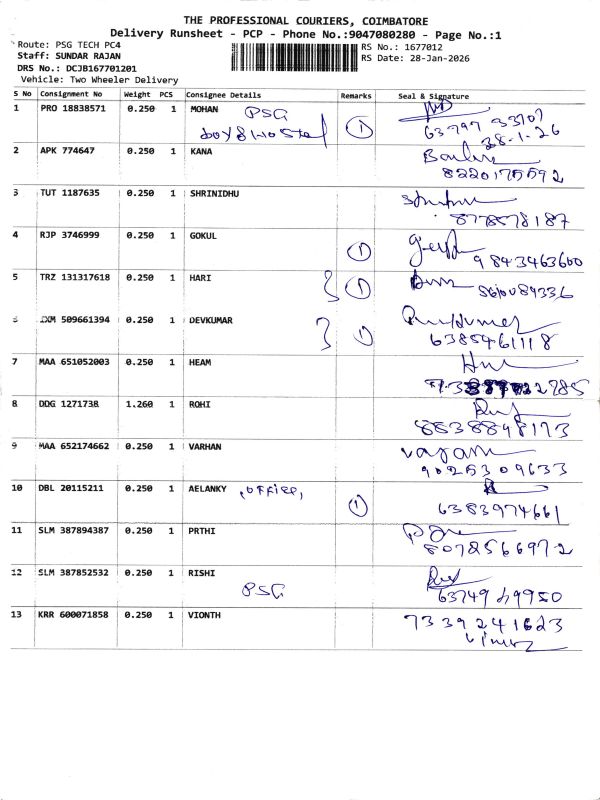 THE PROFESSIONAL COURIERS, COIMBATORE
Delivery Runsheet - PCP - Phone No.:9047080280 - Page No.:1
Route: PSG TECH PC4
Staff: SUNDAR RAJAN
DRS No.: DCJB167701201
Vehicle: Two Wheeler Delivery
RS No.: 1677012
RS Date: 28-Jan-2026
S No Consignment No Weight PCS Consignee Details Remarks Seal & Signature
1 PRO 18838571 0.250 1 MOHAN PSG
boys Hostel 1 63797 33707
28-1-26
2 APK 774647 0.250 1 KANA
8220175592
3 TUT 1187635 0.250 1 SHRINIDHU
878578187
4 RJP 3746999 0.250 1 GOKUL
1 9843463600
5 TRZ 131317618 0.250 1 HARI 1
6 JXM 509661394 0.250 1 DEVKUMAR 1
6385461118
7 MAA 651052003 0.250 1 HEAM
8 DDG 1271738 1.260 1 ROHI
8838848173
9 MAA 652174662 0.250 1 VARHAN
9025309633
10 DBL 20115211 0.250 1 AELANKY office, 1
6383974661
11 SLM 387894387 0.250 1 PRTHI
8072566972
12 SLM 387852532 0.250 1 RISHI
PSG 63749 49950
13 KRR 600071858 0.250 1 VIONTH 7339241623